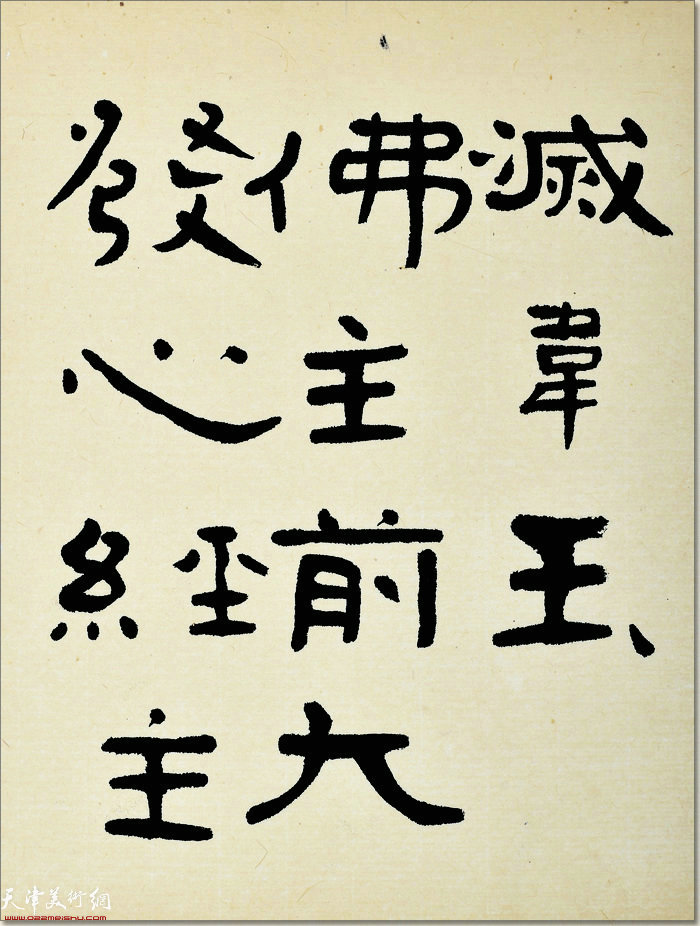 滅韋玉
佛主前大
發心經主
天津美術網
www.022meishu.com